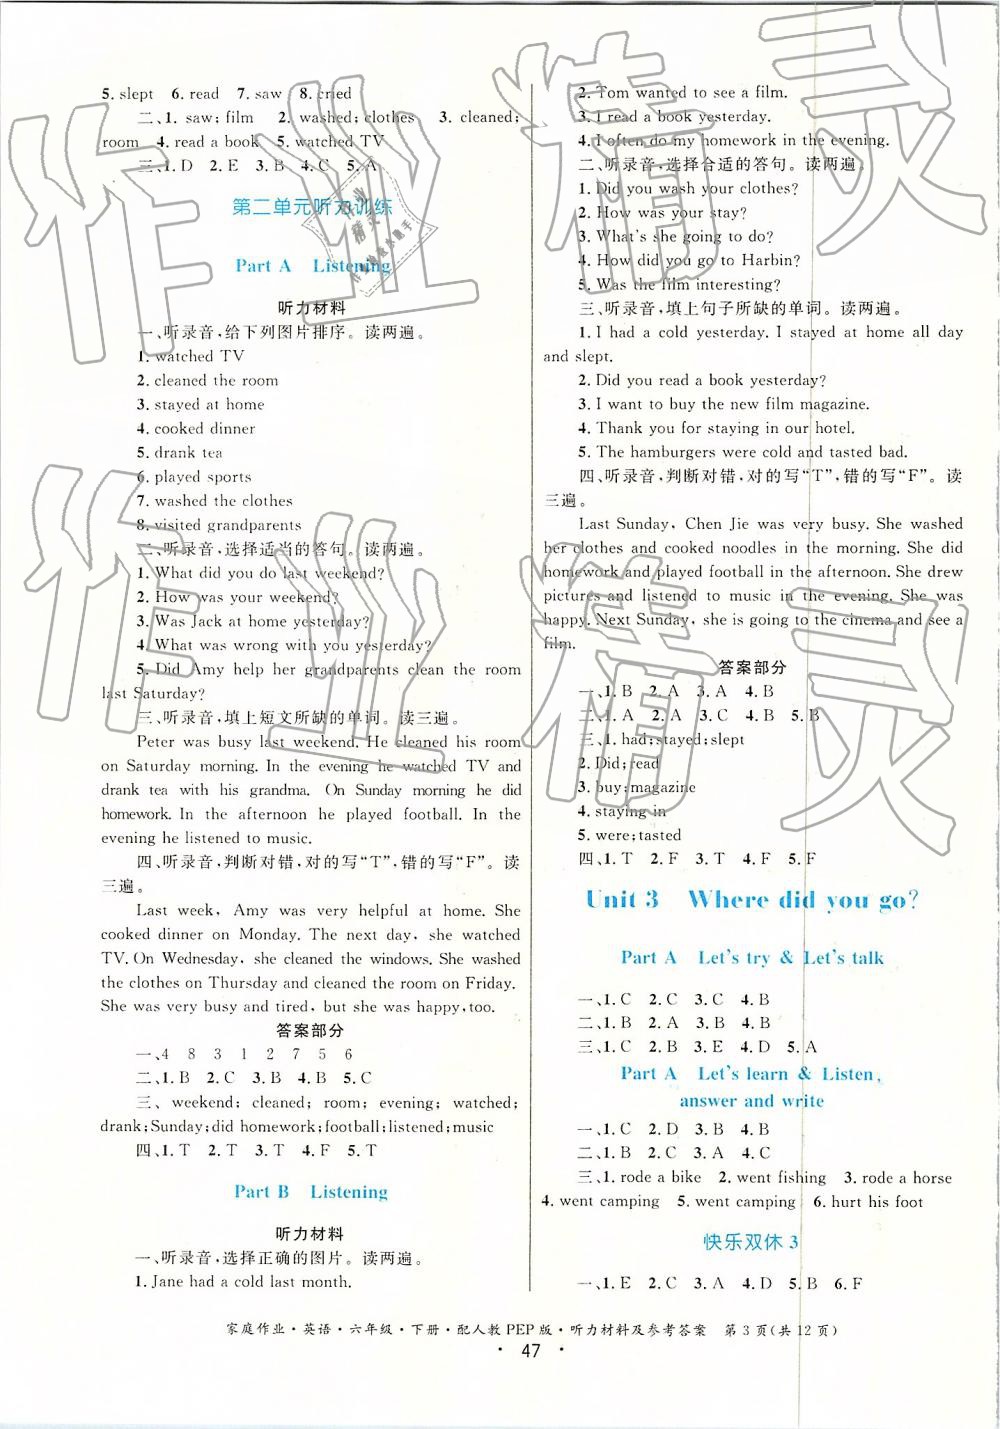 5. slept 6. read 7. saw 8. cried
二、1. saw; film 2. washed; clothes 3. cleaned;
room 4. read a book 5. watched TV
三、1. D 2. E 3. B 4. C 5. A
第二单元听力训练
Part A Listening
听力材料
一、听录音,给下列图片排序。读两遍。
1. watched TV
2. cleaned the room
3. stayed at home
4. cooked dinner
5. drank tea
6. played sports
7. washed the clothes
8. visited grandparents
二、听录音,选择适当的答句。读两遍。
1. What did you do last weekend?
2. How was your weekend?
3. Was Jack at home yesterday?
4. What was wrong with you yesterday?
5. Did Amy help her grandparents clean the room
last Saturday?
三、听录音,填上短文所缺的单词。读三遍。
Peter was busy last weekend. He cleaned his room
on Saturday morning. In the evening he watched TV and
drank tea with his grandma. On Sunday morning he did
homework. In the afternoon he played football. In the
evening he listened to music.
四、听录音,判断对错,对的写“T”,错的写“F”。读
三遍。
Last week, Amy was very helpful at home. She
cooked dinner on Monday. The next day, she watched
TV. On Wednesday, she cleaned the windows. She washed
the clothes on Thursday and cleaned the room on Friday.
She was very busy and tired, but she was happy, too.
答案部分
一、4 8 3 1 2 7 5 6
二、1. B 2. C 3. B 4. B 5. A
三、weekend; cleaned; room; evening; watched;
drank; Sunday; did homework; football; listened; music
四、1. T 2. T 3. T 4. F 5. T
Part B Listening
听力材料
一、听录音,选择正确的图片。读两遍。
1. Jane had a cold last month.
2. Tom wanted to see a film.
3. I read a book yesterday.
4. I often do my homework in the evening.
二、听录音,选择合适的答句。读两遍。
1. Did you wash your clothes?
2. How was your stay?
3. What's she going to do?
4. How did you go to Harbin?
5. Was the film interesting?
三、听录音,填上句子所缺的单词。读两遍。
1. I had a cold yesterday. I stayed at home all day
and slept.
2. Did you read a book yesterday?
3. I want to buy the new film magazine.
4. Thank you for staying in our hotel.
5. The hamburgers were cold and tasted bad.
四、听录音,判断对错,对的写“T”,错的写“F”。读
三遍。
Last Sunday, Chen Jie was very busy. She washed
her clothes and cooked noodles in the morning. She did
homework and played football in the afternoon. She drew
pictures and listened to music in the evening. She was
happy. Next Sunday, she is going to the cinema and see a
film.
答案部分
一、1. B 2. A 3. A 4. B
二、1. A 2. A 3. C 4. B 5. B
三、1. had; stayed; slept
2. Did; read
3. buy; magazine
4. staying in
5. were; tasted
四、1. T 2. F 3. T 4. F 5. F
Unit 3 Where did you go?
Part A Let's try & Let's talk
一、1. C 2. C 3. C 4. B
二、1. B 2. A 3. B 4. B
三、1. C 2. B 3. E 4. D 5. A
Part A Let's learn & Listen,
answer and write
一、1. C 2. D 3. B 4. B
二、1. B 2. A 3. A 4. C
三、1. rode a bike 2. went fishing 3. rode a horse
4. went camping 5. went camping 6. hurt his foot
快乐双休 3
一、1. E 2. C 3. A 4. D 5. B 6. F
家庭作业·英语·六年级·下册·配人教PEP版·听力材料及参考答案 第3页(共12页)
· 47 ·
作业精灵
作业精灵